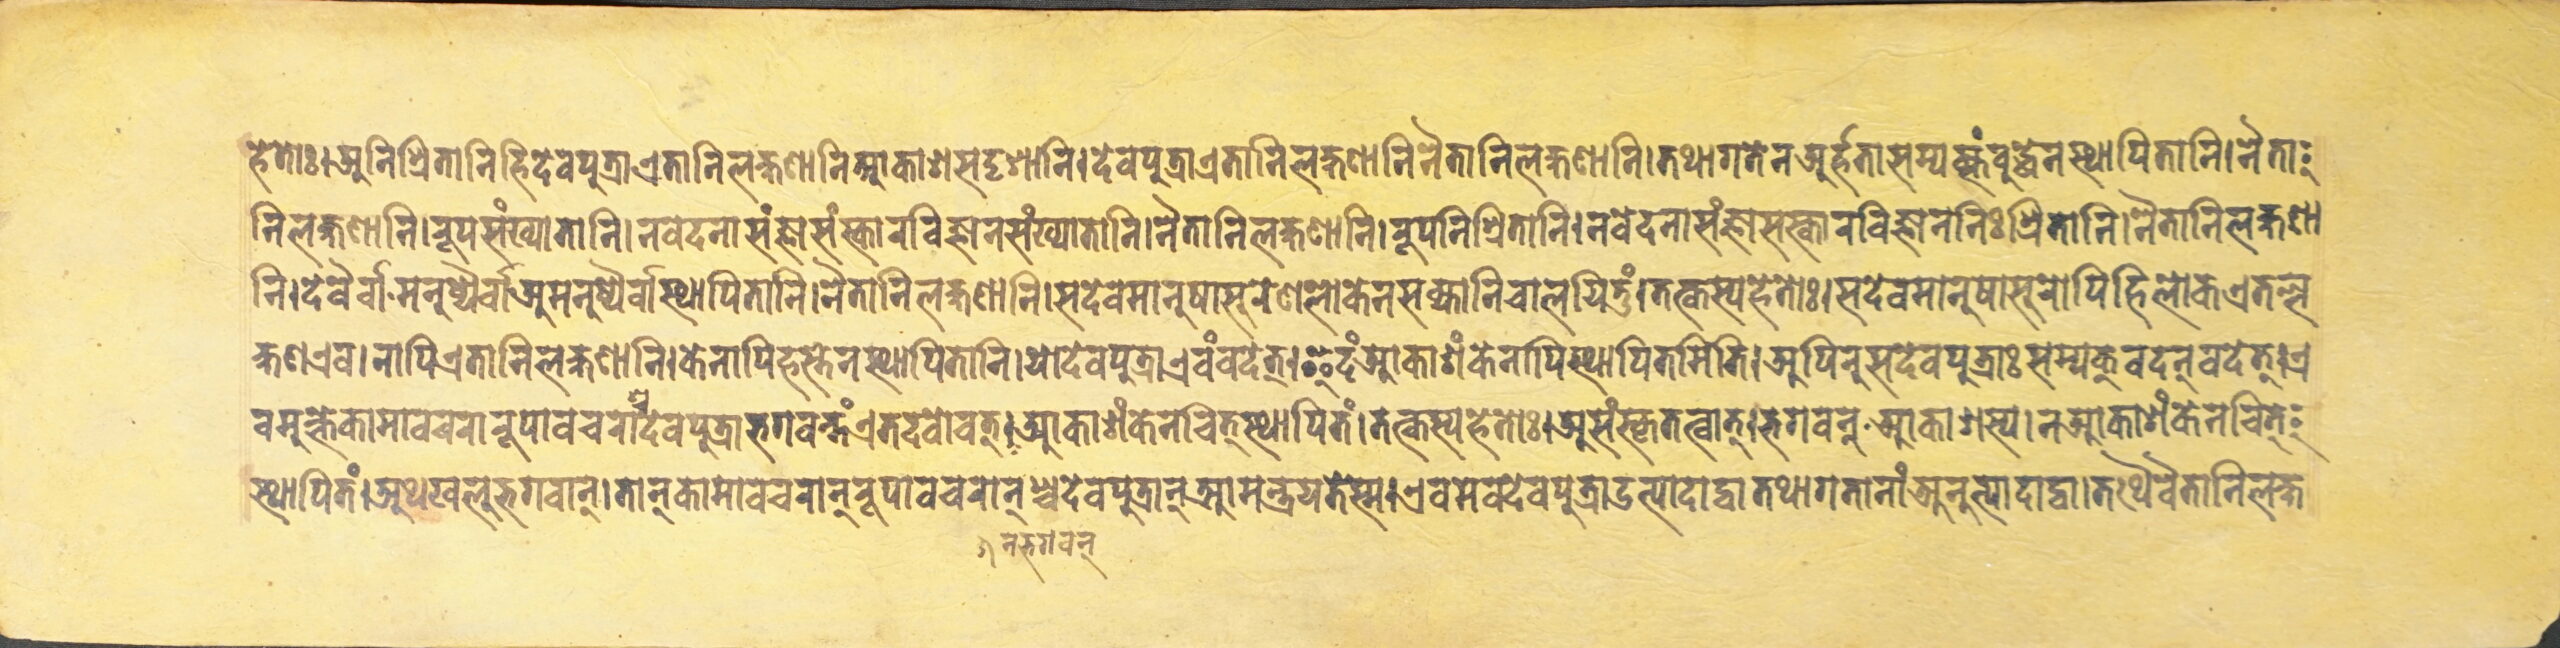 हेतोः।अनिश्रितानिहिदेवपुत्राएतानिलक्षणानिआकाशसदृशानि।देवपुत्राएतानिलक्षणानिनैतानिलक्षणानि।तथागतेनअर्हतासम्यक्संबुद्धेनस्थापितानि।नैता
निलक्षणानि।रूपसंख्यातानि।नवेदनासंज्ञासंस्कारविज्ञानसंख्यातानि।नैतानिलक्षणानि।रूपनिश्रितानि।नवेदनासंज्ञासस्कारविज्ञाननिःश्रितानि।नैतानिलक्षणा
नि।देवैर्वामनुष्यैर्वाअमनुष्यैर्वास्थापितानि।नैतानिलक्षणानि।सदेवमानुषासुरेणलोकेनसक्यानिचालयितुं।तत्कस्यहेतोः।सदेवमानुषासुरोपिहिलोकएतल्ल
क्षणएव।नापिएतानिलक्षणानि।केनापिहस्तेनस्थापितानि।योदेवपुत्राएवंवदेत्।इदंआकाशंकेनापिस्थापितमिति।अपिनुसदेवपुत्राःसम्यक्वदन्वदेत्।ए
वमुक्तेकामावचरारूपावचराश्चदेवपुत्राभगवन्तंएतदवोचत्।आकाशंकेनचित्स्थापितं।तत्कस्यहेतोः।असंस्कृतत्वात्।भगवन्आकाशस्य।नआकाशंकेनचित्
स्थापितं।अथखलुभगवान्।तान्कामावचरान्रूपावचरान्श्चदेवपुत्रान्आमन्त्रयतेस्म।एवमेवदेवपुत्राउत्पादाद्वातथागतानांअनुत्पादाद्वा।तथैवैतानिलक्ष
नभगवन्